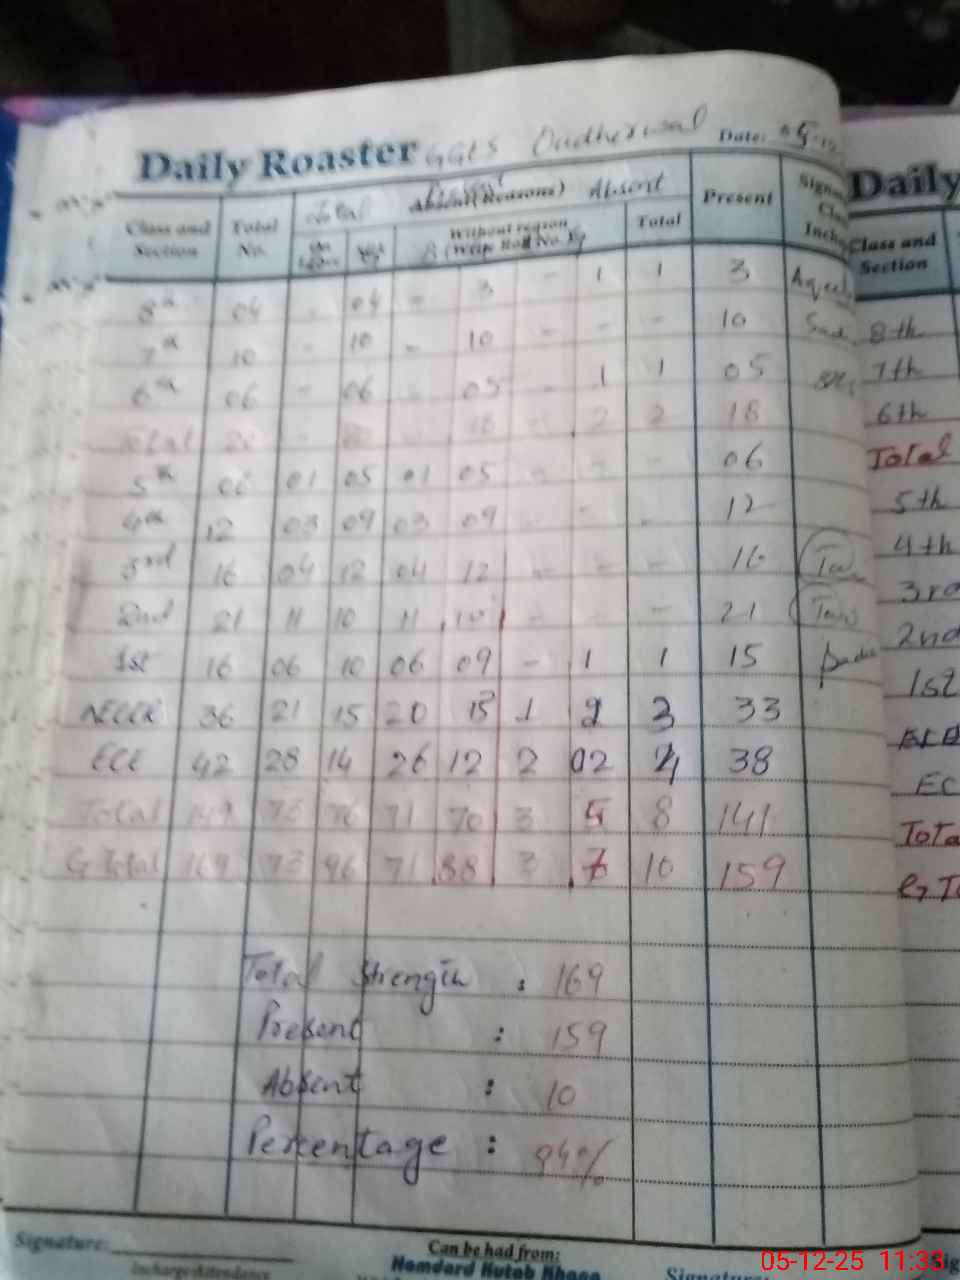 Daily Roaster GGES Dudherwal Date: 05-12
Class and Section Total No. Total Absent (Reasons) Absent Present
Without reason (Write Roll No.) Total
8th 04 - 04 - 3 - 1 1 3 Aqeel
7th 10 - 10 - 10 - - - 10
6th 06 - 06 - 05 - 1 1 05
Total 20 - 20 - 18 - 2 2 18
5th 06 01 05 01 05 - - - 06
4th 12 03 09 03 09 - - - 12
3rd 16 04 12 04 12 - - - 16
2nd 21 11 10 11 10 - - - 21
1st 16 06 10 06 09 - 1 1 15
36 21 15 20 13 1 2 3 33
ECE 42 28 14 26 12 2 02 4 38
Total 149 73 76 71 70 3 5 8 141
G Total 169 73 96 71 88 3 7 10 159
Total Strength : 169
Present : 159
Absent : 10
Percentage : 94%
Signature:
Incharge Attendance
Can be had from:
Hamdard Kutab Khana
Signature:
Daily
Class and Section
8th
7th
6th
Total
5th
4th
3rd
2nd
1st
EC
Tota
G To
05-12-25 11:33